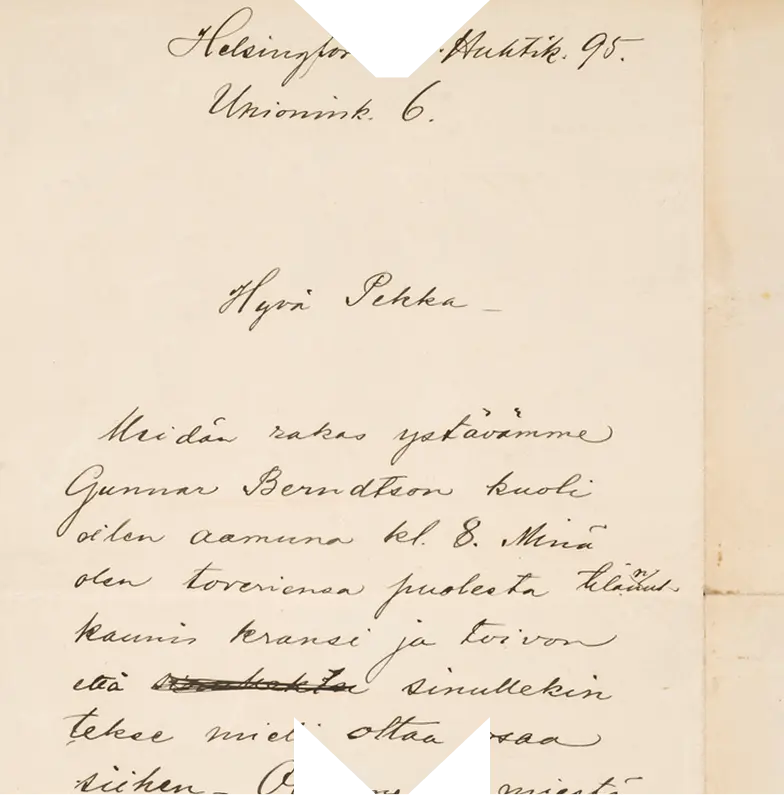 Helsingfor . Huhtik. 95.
Unionink. 6.
Hyvä Pekka –
Meidän rakas ystävämme
Gunnar Berndtson kuoli
eilen aamuna kl. 8. Minä
olen toveriensa puolesta tilannut
kaunis kransi ja toivon
että sinullekin
tekse mieli ottaa osaa
siihen – miestä